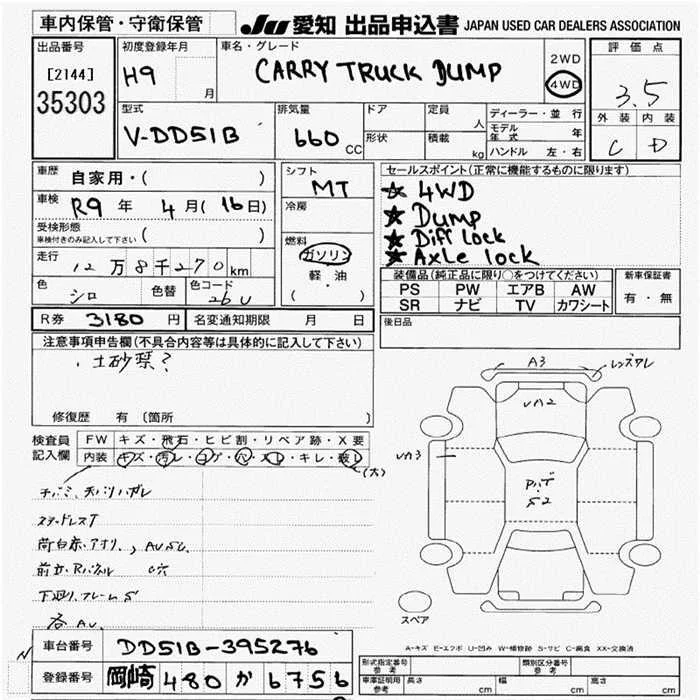 車内保管・守衛保管
JU 愛知 出品申込書 JAPAN USED CAR DEALERS ASSOCIATION
出品番号
[2144]
35303
初度登録年月
H9
月
車名・グレード
CARRY TRUCK DUMP
2WD
4WD
評価点
3.5
外装 内装
C D
型式
V-DD51B
排気量
660 CC
ドア
形状
定員
人
積載
kg
ディーラー・並行
モデル年式 年
ハンドル 左・右
車歴
自家用・( )
車検
R9 年 4 月 (16日)
受検形態
車検付きのみ記入して下さい ( )
走行
12万8千270km
色
シロ
色替
色コード
26U
シフト
MT
冷房
燃料
ガソリン
軽油
( )
セールスポイント(正常に機能するものに限ります)
★ 4WD
★ Dump
★ Diff lock
★ Axle lock
装備品(純正品に限り○をつけてください)
PS PW エアB AW
SR ナビ TV カワシート
新車保証書
有・無
R券 3180 円
名変通知期限 月 日
後日品
注意事項申告欄(不具合内容等は具体的に記入して下さい)
土砂禁?
修復歴 有 〔箇所 〕
検査員
記入欄
FW キズ・飛石・ヒビ割・リペア跡・X要
内装 キズ・汚レ・コゲ・穴・スレ・キレ・破レ
(大)
スタッドレスT
荷台床、アオリ、
下廻り、フレームS
各AU
A3
レンズワレ
UA2
UA3
スペア
A-キズ E-エクボ U-凹み W-補修跡 S-サビ C-腐食 XX-交換済
車台番号
DD51B-395276
登録番号
岡崎 480 か 6756
形式指定番号
参考
類別区分番号
参考
車庫証明用
参考
長さ cm
幅 cm
高さ cm